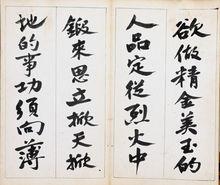 欲做精金美玉的
人品定從烈火中
鍛來思立掀天掀
地的事功須向薄